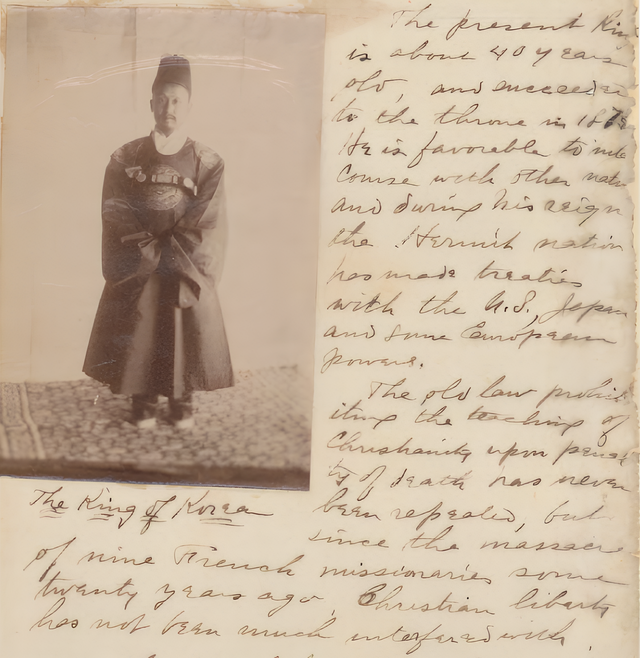 The present King
is about 40 years
old, and succeeded
to the throne in 1873
He is favorable to inter
course with other natio
and during his reign
the Hermit nation
has made treaties
with the U.S, Japan
and some European
powers.
The old law prohib
iting the teaching of
Christianity upon penal
ty of death has never
been repealed, but
since the massacre
The King of Korea
of nine French missionaries some
twenty years ago, Christian liberty
has not been much interfered with.